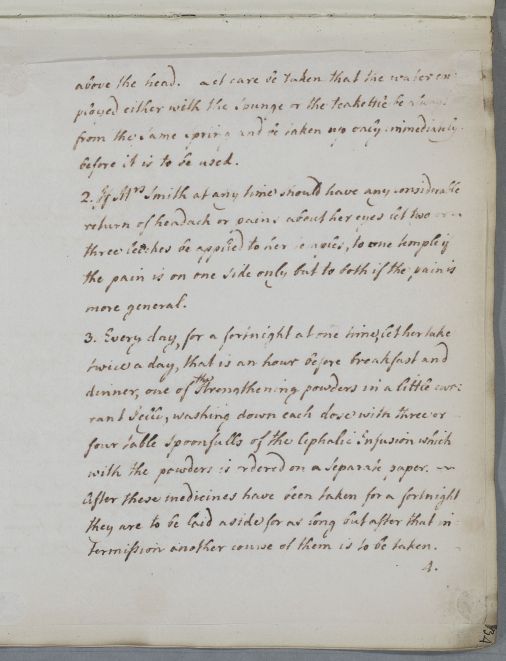 above the head. Let care be taken that the water em-
ployed either with the spunge or the teakettle be always
from the same spring and be taken up only immediately
before it is to be used.
2. If Mrs Smith at any time should have any considerable
return of headach or pains about her eyes let two or
three leeches be applied to her temples, to one temple if
the pain is on one side only but to both if the pain is
more general.
3. Every day, for a fortnight at one time, let her take
twice a day, that is an hour before breakfast and
dinner, one of the strengthening powders in a little cur:
rant Jelly, washing down each dose with three or
four table spoonfulls of the Cephalic Infusion which
with the powders is ordered on a separate paper.
After these medicines have been taken for a fortnight
they are to be laid aside for as long but after that in
termission another course of them is to be taken.
4.
134